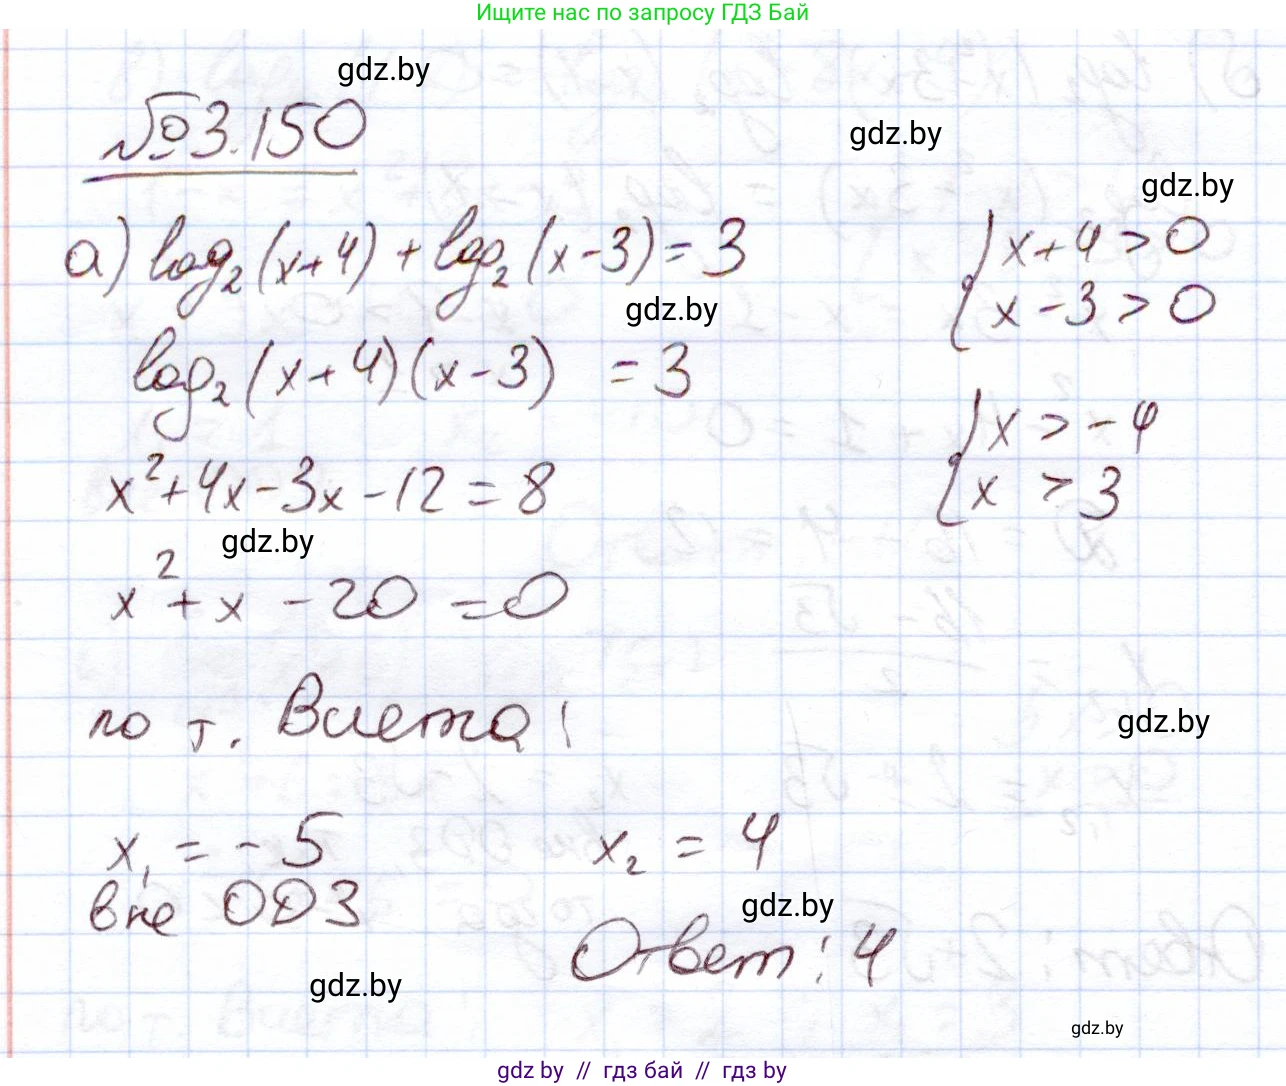 Ищите нас по запросу ГДЗ Бай
gdz.by
№3.150
gdz.by
gdz.by
а) log₂(x+4) + log₂(x-3) = 3
x+4 > 0
x-3 > 0
gdz.by
log₂(x+4)(x-3) = 3
x > -4
x > 3
x²+4x-3x-12 = 8
gdz.by
x²+x-20=0
по т. Виета:
gdz.by
x₁ = -5
x₂ = 4
вне ОДЗ
gdz.by
Ответ: 4
gdz.by
gdz.by
gdz by // гдз бай // гдз by